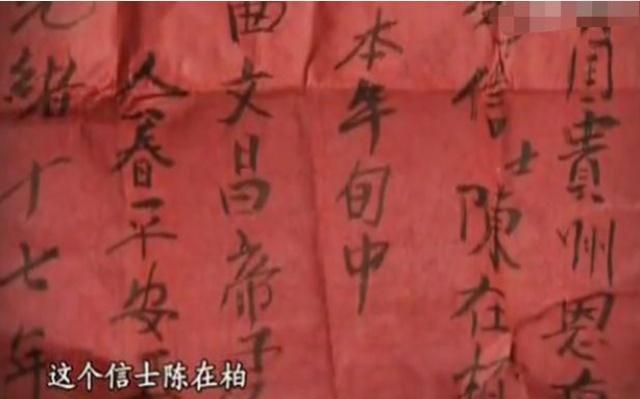 貴州恩
信士陳在柏
本年旬中
曲文昌帝
人眷平安
光緒十七年
这个信士陈在柏